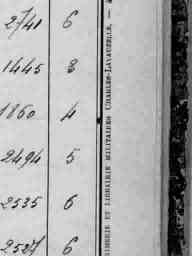 2741 6
1445 3
1860 4
2494 5
2535 6
6
IMERIE ET LIBRAIRIE MILITAIRES CHARLES-LAVAUZELLE, —